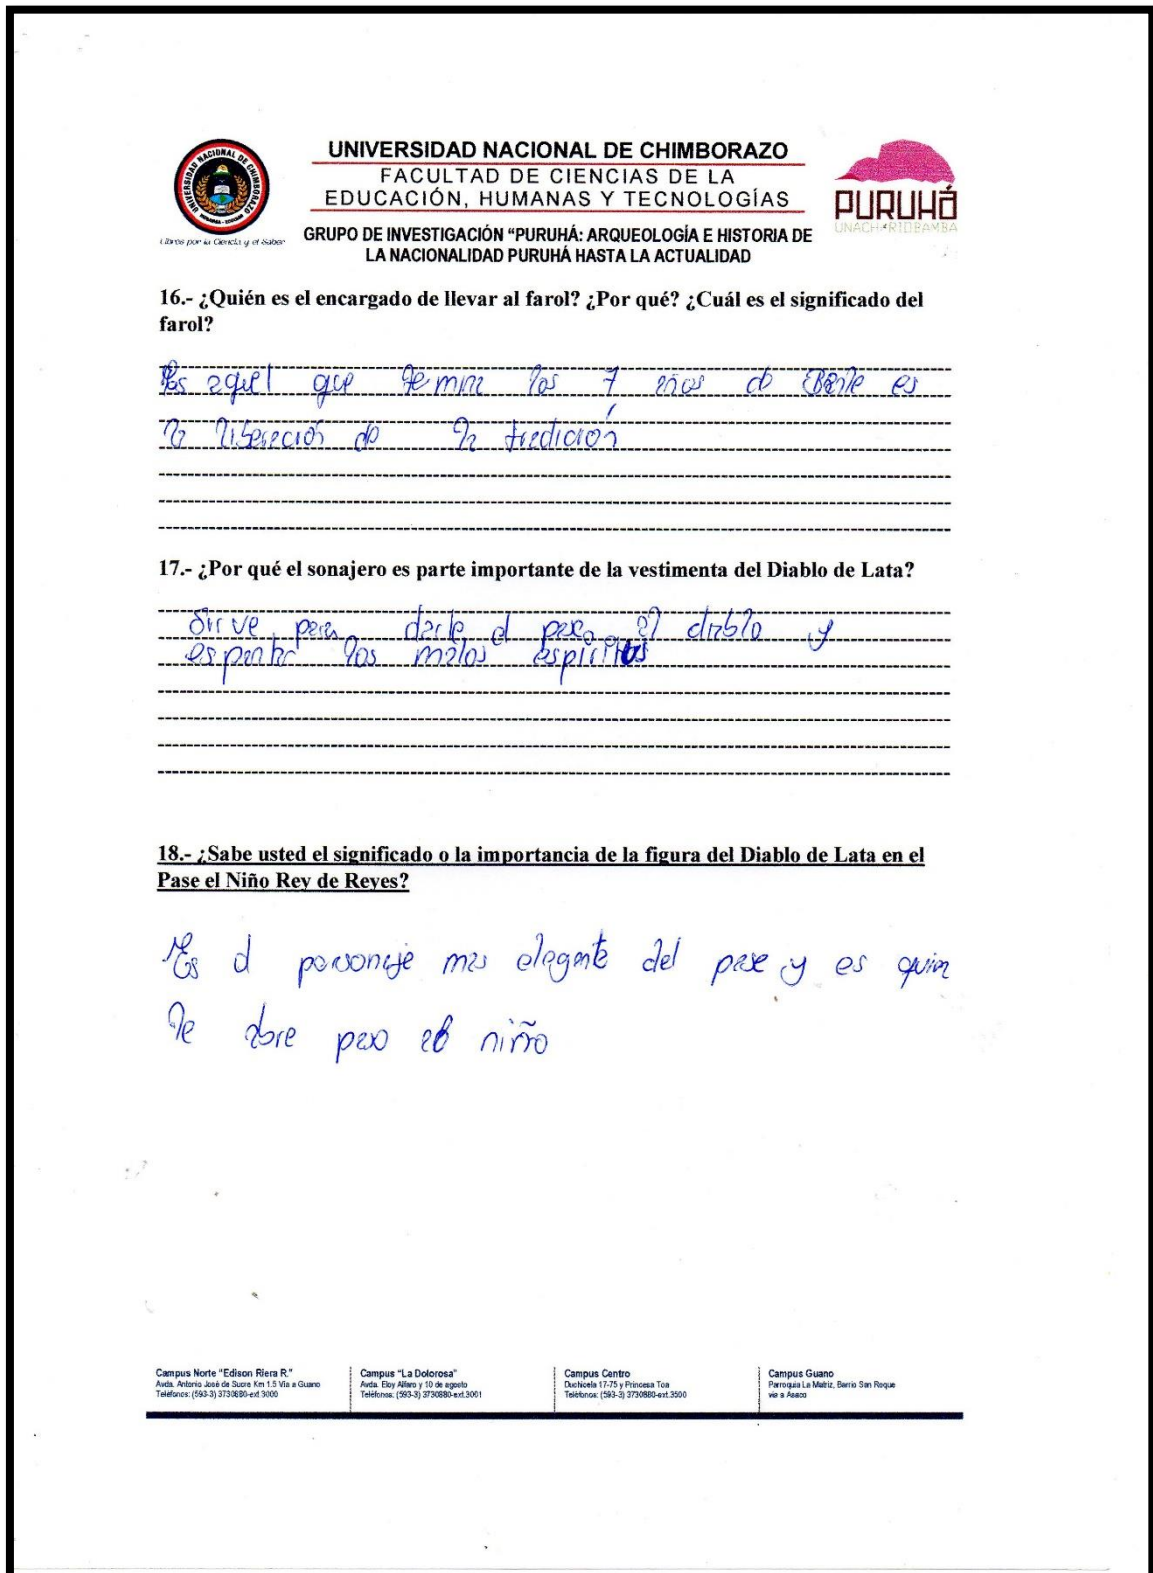 UNIVERSIDAD NACIONAL DE CHIMBORAZO
FACULTAD DE CIENCIAS DE LA
EDUCACIÓN, HUMANAS Y TECNOLOGÍAS
GRUPO DE INVESTIGACIÓN “PURUHÁ: ARQUEOLOGÍA E HISTORIA DE
LA NACIONALIDAD PURUHÁ HASTA LA ACTUALIDAD
UNIVERSIDAD NACIONAL DE CHIMBORAZO
Libres por la Ciencia y el Saber
PURUHÁ
UNACH RIOBAMBA
16.- ¿Quién es el encargado de llevar al farol? ¿Por qué? ¿Cuál es el significado del
farol?
Es aquel que termina los 7 años de baile es
la liberación de la tradición
17.- ¿Por qué el sonajero es parte importante de la vestimenta del Diablo de Lata?
Sirve para darle el paso al diablo y
espantar los malos espíritus
18.- ¿Sabe usted el significado o la importancia de la figura del Diablo de Lata en el
Pase el Niño Rey de Reyes?
Es el personaje mas elegante del pase y es quien
le abre paso al niño
Campus Norte "Edison Riera R."
Avda. Antonio José de Sucre Km 1.5 Vía a Guano
Teléfonos: (593-3) 3730880-ext 3000
Campus "La Dolorosa"
Avda. Eloy Alfaro y 10 de agosto
Teléfonos: (593-3) 3730880-ext.3001
Campus Centro
Duchicela 17-75 y Princesa Toa
Teléfonos: (593-3) 3730880-ext.3500
Campus Guano
Parroquia La Matriz, Barrio San Roque
vía a Asaco